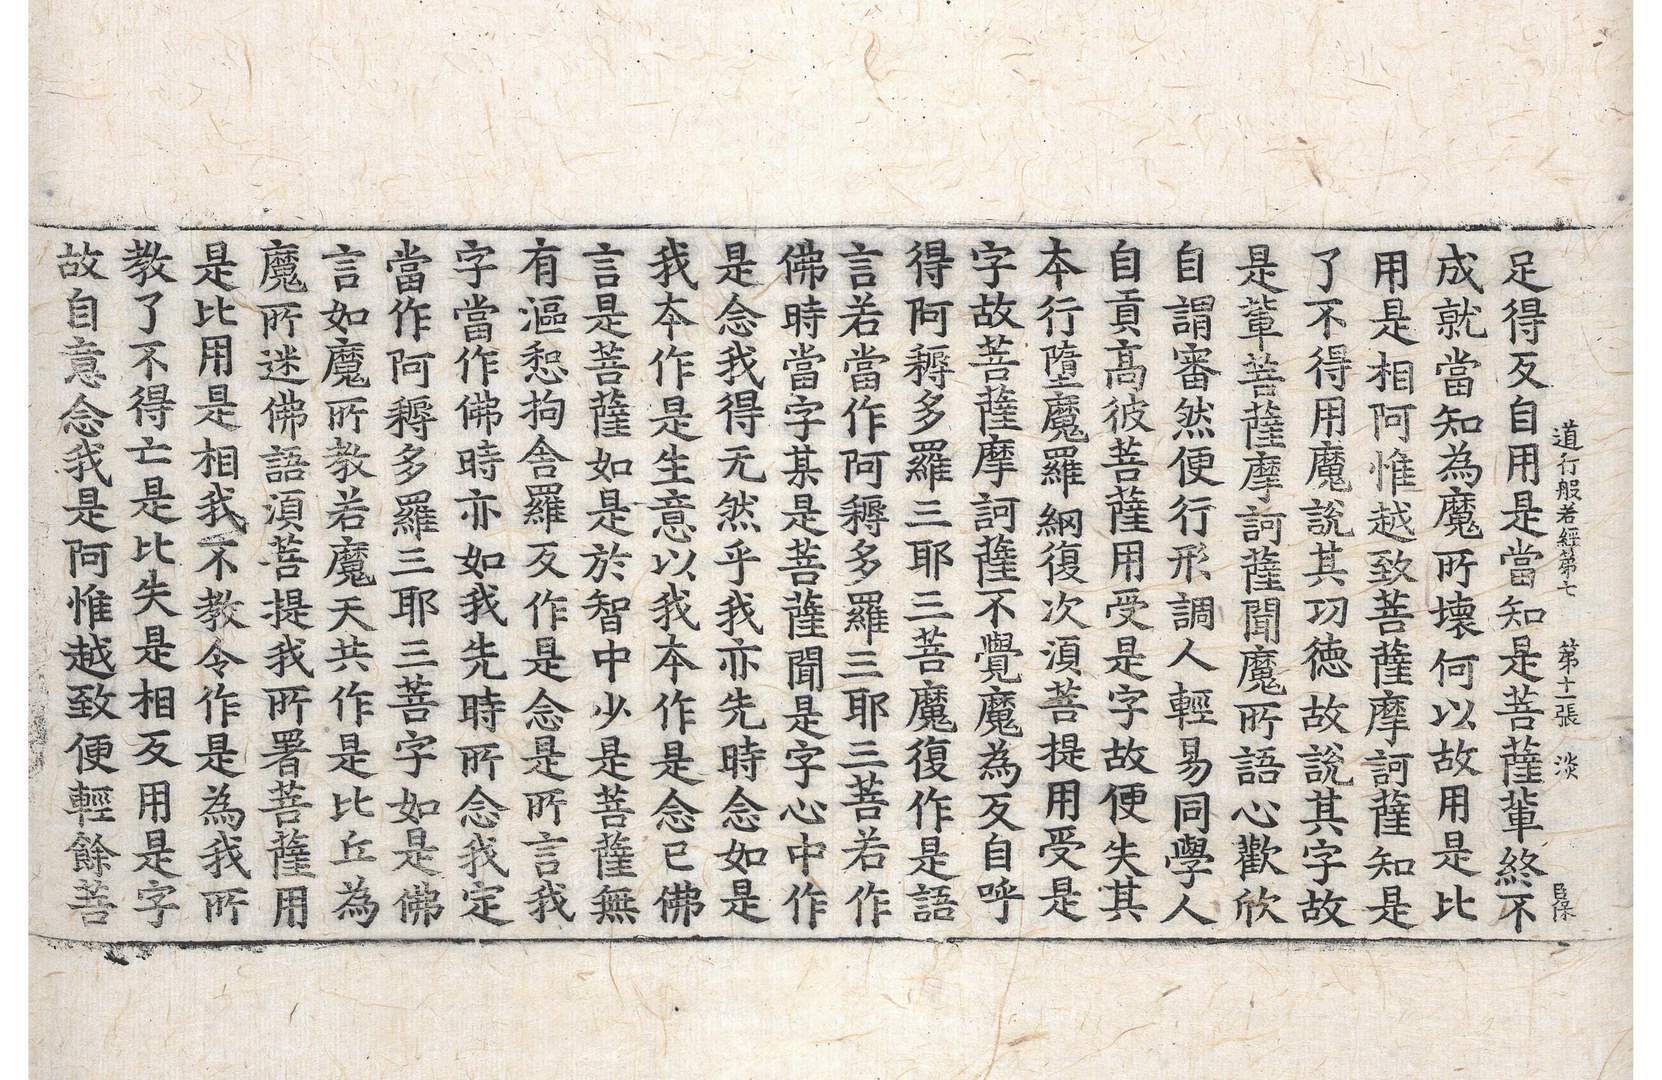 道行般若經第七　第十一張　淡
足得反自用是當知是菩薩輩終不
成就當知為魔所壞何以故用是比
用是相阿惟越致菩薩摩訶薩知是
了不得用魔說其功徳故說其字故
是輩菩薩摩訶薩聞魔所語心歡欣
自謂審然便行形調人輕易同學人
自貢高彼菩薩用受是字故便失其
本行墮魔羅網復次湏菩提用受是
字故菩薩摩訶薩不覺魔為反自呼
得阿耨多羅三耶三菩魔復作是語
言若當作阿耨多羅三耶三菩若作
佛時當字某是菩薩聞是字心中作
是念我得无然乎我亦先時念如是
我本作是生意以我本作是念已佛
言是菩薩如是於智中少是菩薩無
有漚惒拘舍羅反作是念是所言我
字當作佛時亦如我先時所念我定
當作阿耨多羅三耶三菩字如是佛
言如魔所教若魔天共作是比丘為
魔所迷佛語湏菩提我所署菩薩用
是比用是相我不教令作是為我所
教了不得亡是比失是相反用是字
故自意念我是阿惟越致便輕餘菩